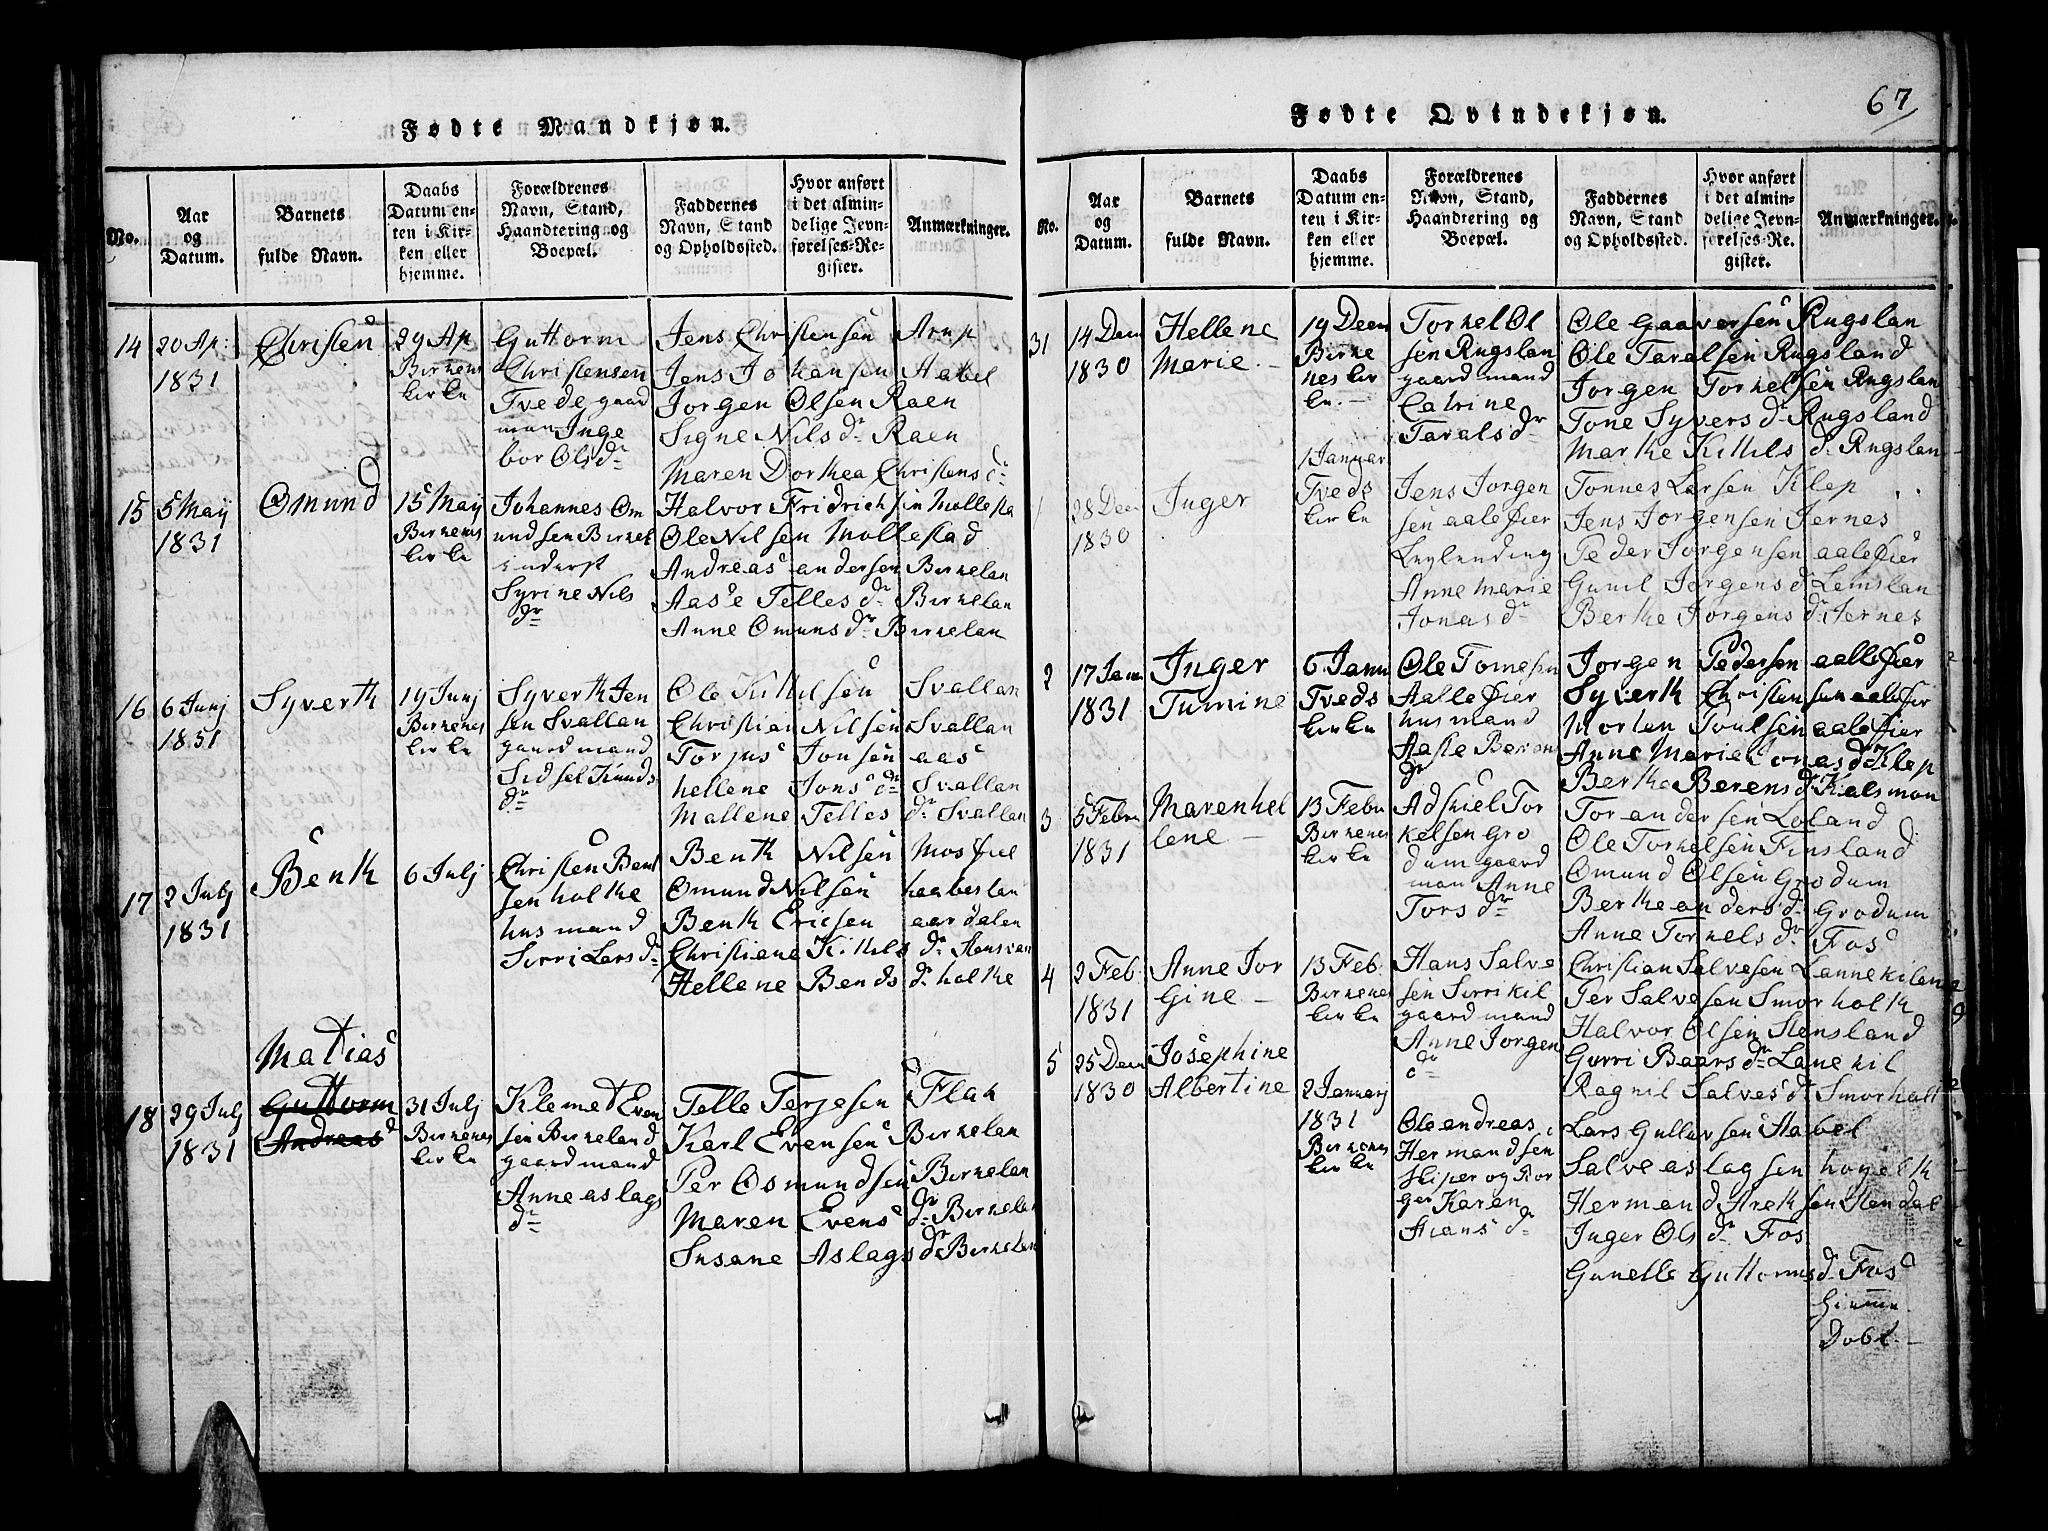 Fødte Mandkjøn.
No.
Aar
og
Datum.
Barnets
fulde Navn.
Daabs
Datum en-
ten i Kir-
ken eller
hjemme.
Forældrenes
Navn, Stand,
Haandtering og
Boepæl.
Faddernes
Navn, Stand
og Opholdssted.
Hvor anført
i det almin-
delige Jevn-
førelses-Re-
gister.
Anmærkninger.
14
20 Ap:
1831
Christen
29 Ap
Birkenes
kirke
Guttorm
Christensen
Tvede gaard
man Inge
bor Olsdr
Jens Christensen Arup
Jens Johansen Habel
Jorgen Olsen Raen
Signe Nilsdr Raen
Maren Dorthea Christensdr
15
5 Maij
1831
Omund
15 May
Birkenes
kirke
Johannes Om
undsen Birkel
inderst
Syrine Nils
dr
Halvor Fridrichsen Mollesta
Ole Nilsen Mollestad
Andreas andersen Birkelan
Aase Tellesdr Birkelan
Anne Omunsdr Birkelan
16
6 Junj
1831
Syverth
19 Junj
Birkenes
kirke
Syverth Jen
sen Svallan
gaardmand
Sidsel Knuds
dr
Ole Kittilsen Svallan
Christian Nilsen Svallan
Torjus Jonsen aas
Hellene Jonsdr Svallan
Mallene Tellesdr Svallan
17
2 Julj
1831
Benth
6 Julj
Christen Bent
sen holthe
husmand
Sirri Larsdr
Benth Nilsen Mosfiel
Omund Nilsen haabeslan
Benth Ericsen aardalen
Christiane Kittilsdr Stensvan
Hellene Bendsdr holthe
18
29 Julj
1831
Matias
Guttorm
Andreas
31 Julj
Birkenes
kirke
Klemet Even
sen Birkeland
gaardmand
Anne aslags
dr
Telle Terjesen Flak
Karl Evensen Birkelan
Per Osmundsen Birkelan
Maren Evensdr Birkelan
Susane Aslagsdr Birkelan
Fødte Qvindekjøn.
67
No.
Aar
og
Datum.
Barnets
fulde Navn.
Daabs
Datum en-
ten i Kir-
ken eller
hjemme.
Forældrenes
Navn, Stand,
Haandtering og
Boepæl.
Faddernes
Navn, Stand
og Opholdssted.
Hvor anført
i det almin-
delige Jevn-
førelses-Re-
gister.
Anmærkninger.
31
14 Dem
1830
Hellene
Marie
19 Decm
Birke
nes kir
ke
Torkel Ol
sen Rugslan
gaardmand
Catrine
Taralsdr
Ole Gaaversen Rugslan
Ole Taralsen Rugsland
Jorgen Torkelsen Rugslan
Tone Syversdr Rugsland
Marthe Kittilsdr Rugslan
1
28 Dem
1830
Inger
1 Januar
Tveds
kirke
Jens Jorgen
sen aalefier
Leylending
Anne Marie
Jonasdr
Tonnes Larsen Klep
Jens Jorgensen Jernes
Peder Jorgensen aalefier
Gunil Jorgensdr Lemslan
Berthe Jorgensdr Jernes
2
17 Jam
1831
Inger
Tumine
6 Janu
Tveds
kirke
Ole Tomesen
Aallefier
husmand
Aaste Beron
dr
Jorgen Pedersen aallefier
Syverth Christensen aalefier
Morten Poulsen aalefier
Anne Marie Jonasdr Klep
Berthe Berensdr Kalsmon
3
5 Febru
1831
Maren hel
lene
13 Febr
Birkenes
kirke
Adskiel Tor
kelsen Gro
dum gaard
man Anne
Torsdr
Tor andersen Loland
Ole Torkelsen Finsland
Omund Olsen Grodum
Berthe andersdr Grodum
Anne Torkelsdr Fos
4
2 Feb.
1831
Anne Jor
Gine
13 Feb.
Birkenes
kirke
Hans Salve
sen Sirrikil
gaardmand
Anne Jorgen
dr
Christian Salvesen Lannekilen
Per Salvesen Smorholth
Halvor Olsen Stensland
Gurri Baarsdr Lanekil
Ragnil Salvesdr Smorholt
5
25 Dem
1830
Josephine
Albertine
2 Januarj
1831
Birkenes
kirke
Ole andreas
Hermandsen
skiper og Bor
ger Karen
Stiansdr
Lars Gullersen Habel
Salve aslagsen hogelth
Hermand Arethsen Stendal
Inger Olsdr Fos
Gunelle Guttormsdr Fos
hiemme
Dobt